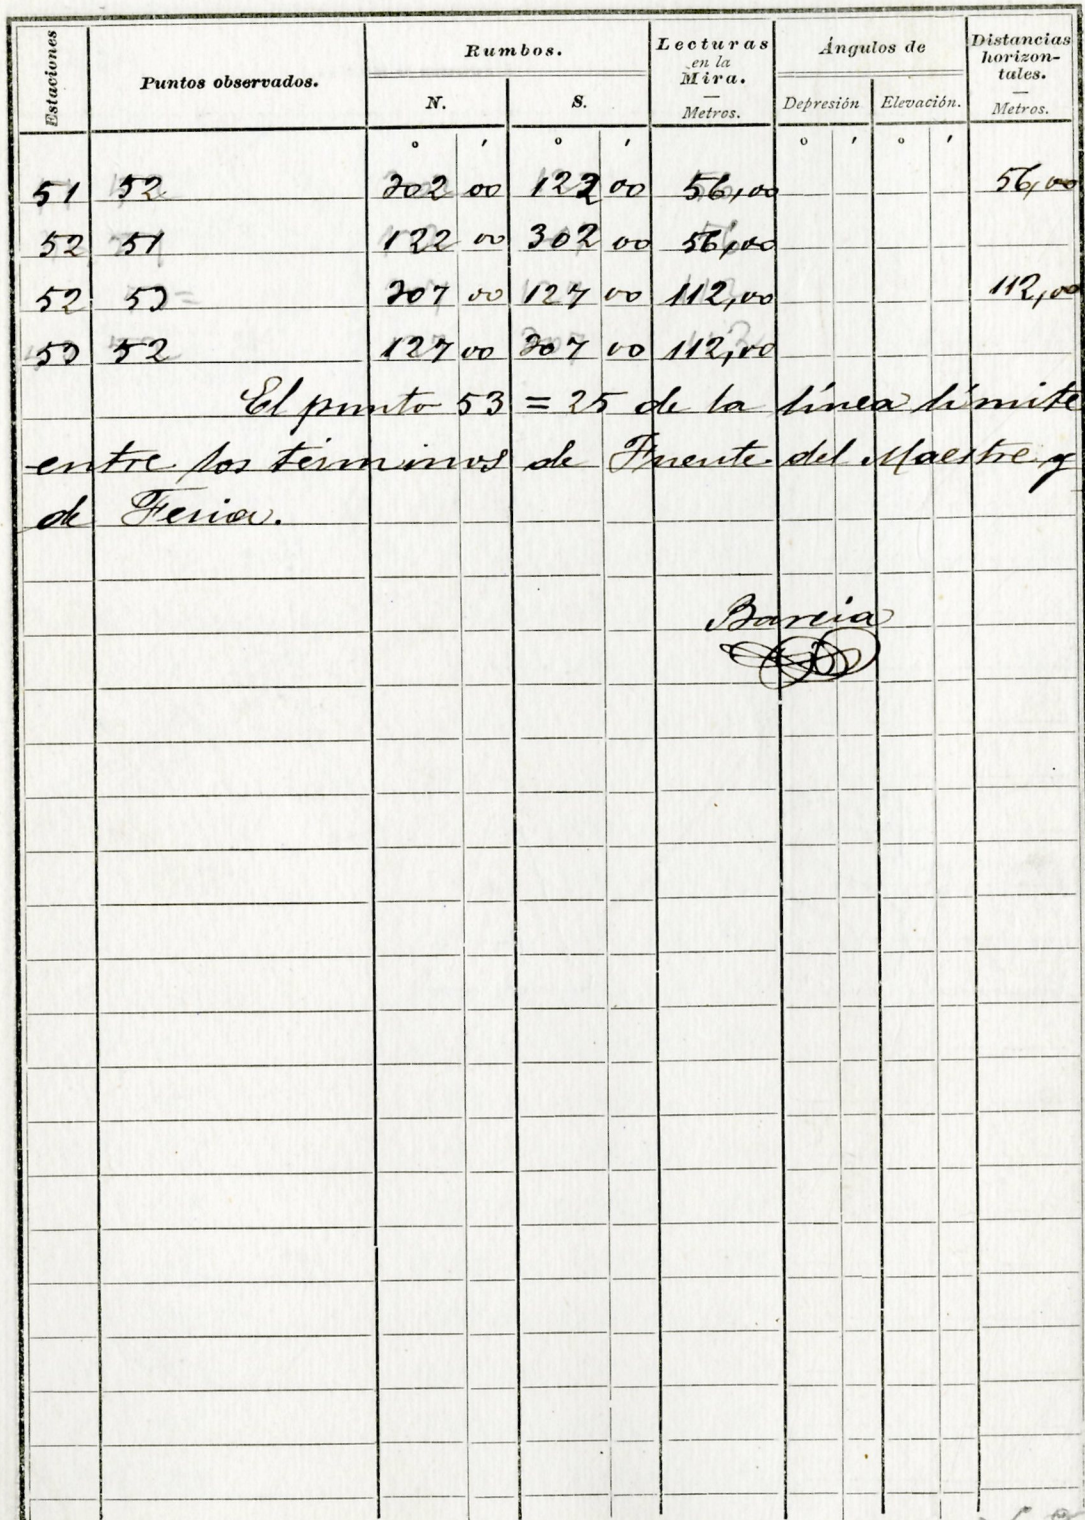 Estaciones Puntos observados. Rumbos. Lecturas en la Mira. — Metros. Ángulos de Distancias horizontales. — Metros.
N. S. Depresión Elevación.
° ′ ° ′ ° ′ ° ′
51 52 302 00 122 00 56,00 56,00
52 51 122 00 302 00 56,00
52 53 307 00 127 00 112,00 112,00
53 52 127 00 307 00 112,00
El punto 53 = 25 de la línea límite
entre los términos de Fuente del Maestre y
de Feria.
Barcia